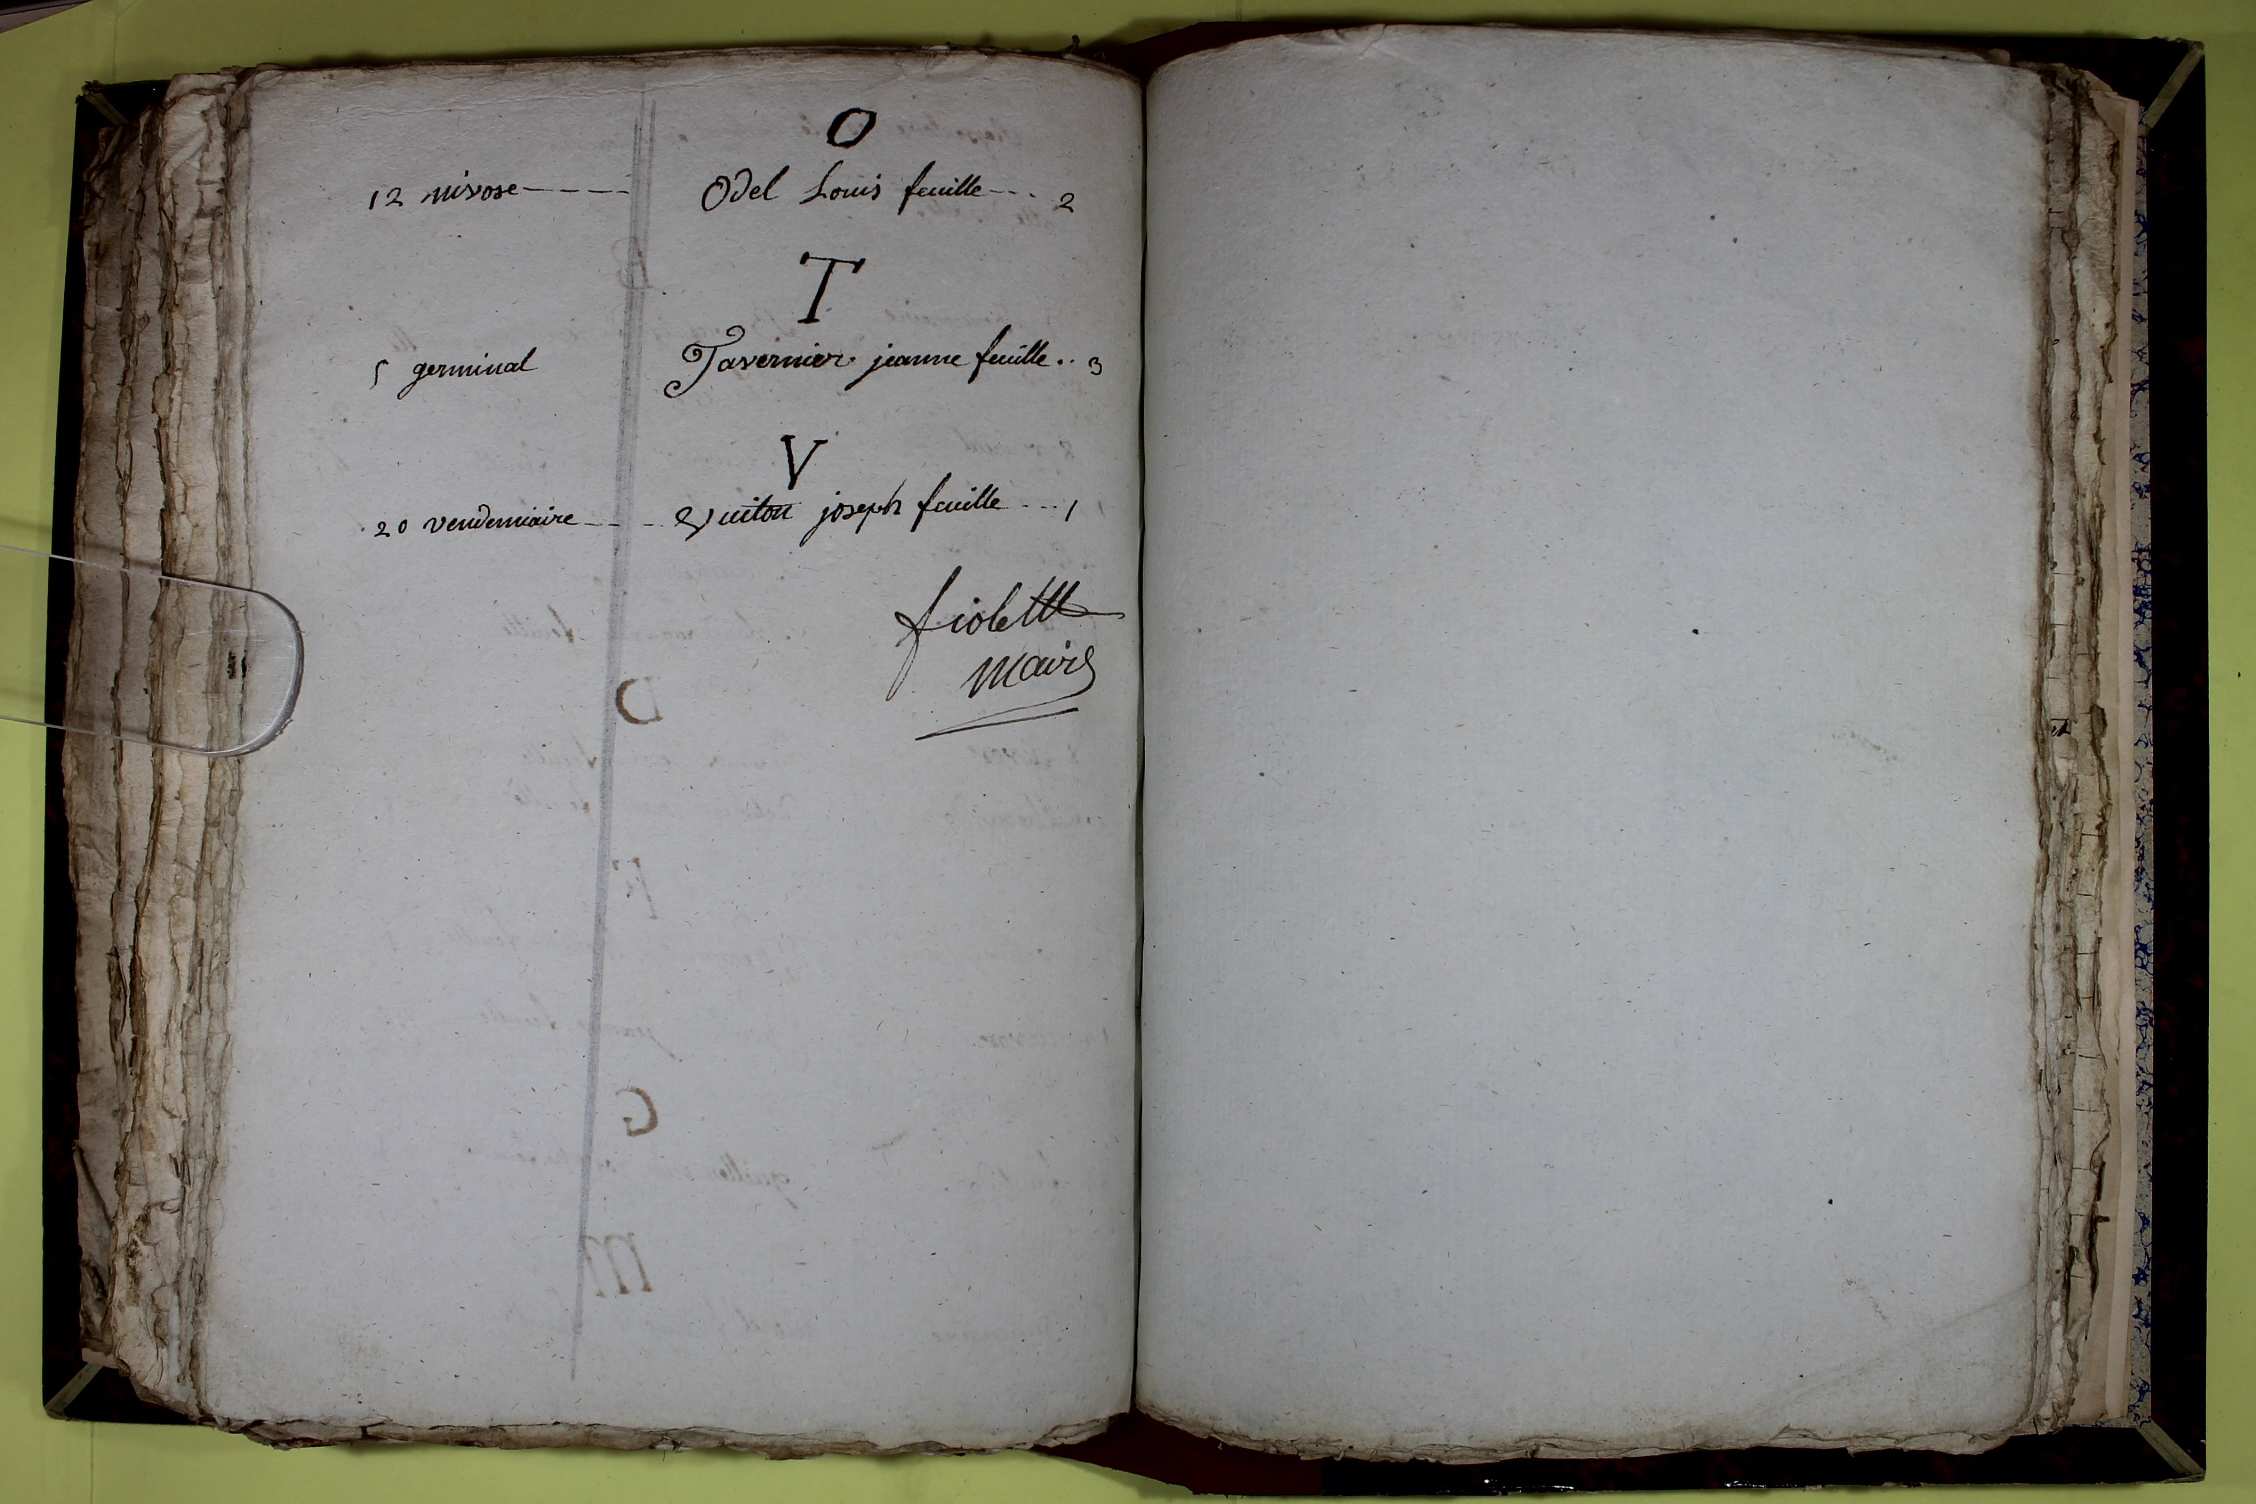 O
12 nivose ---- Odel Louis feuille --- 2
T
5 germinal Tavernier jeanne feuille .. 3
V
20 vendemiaire ---- Vuiton joseph feuille --- 1
fiolette
maire